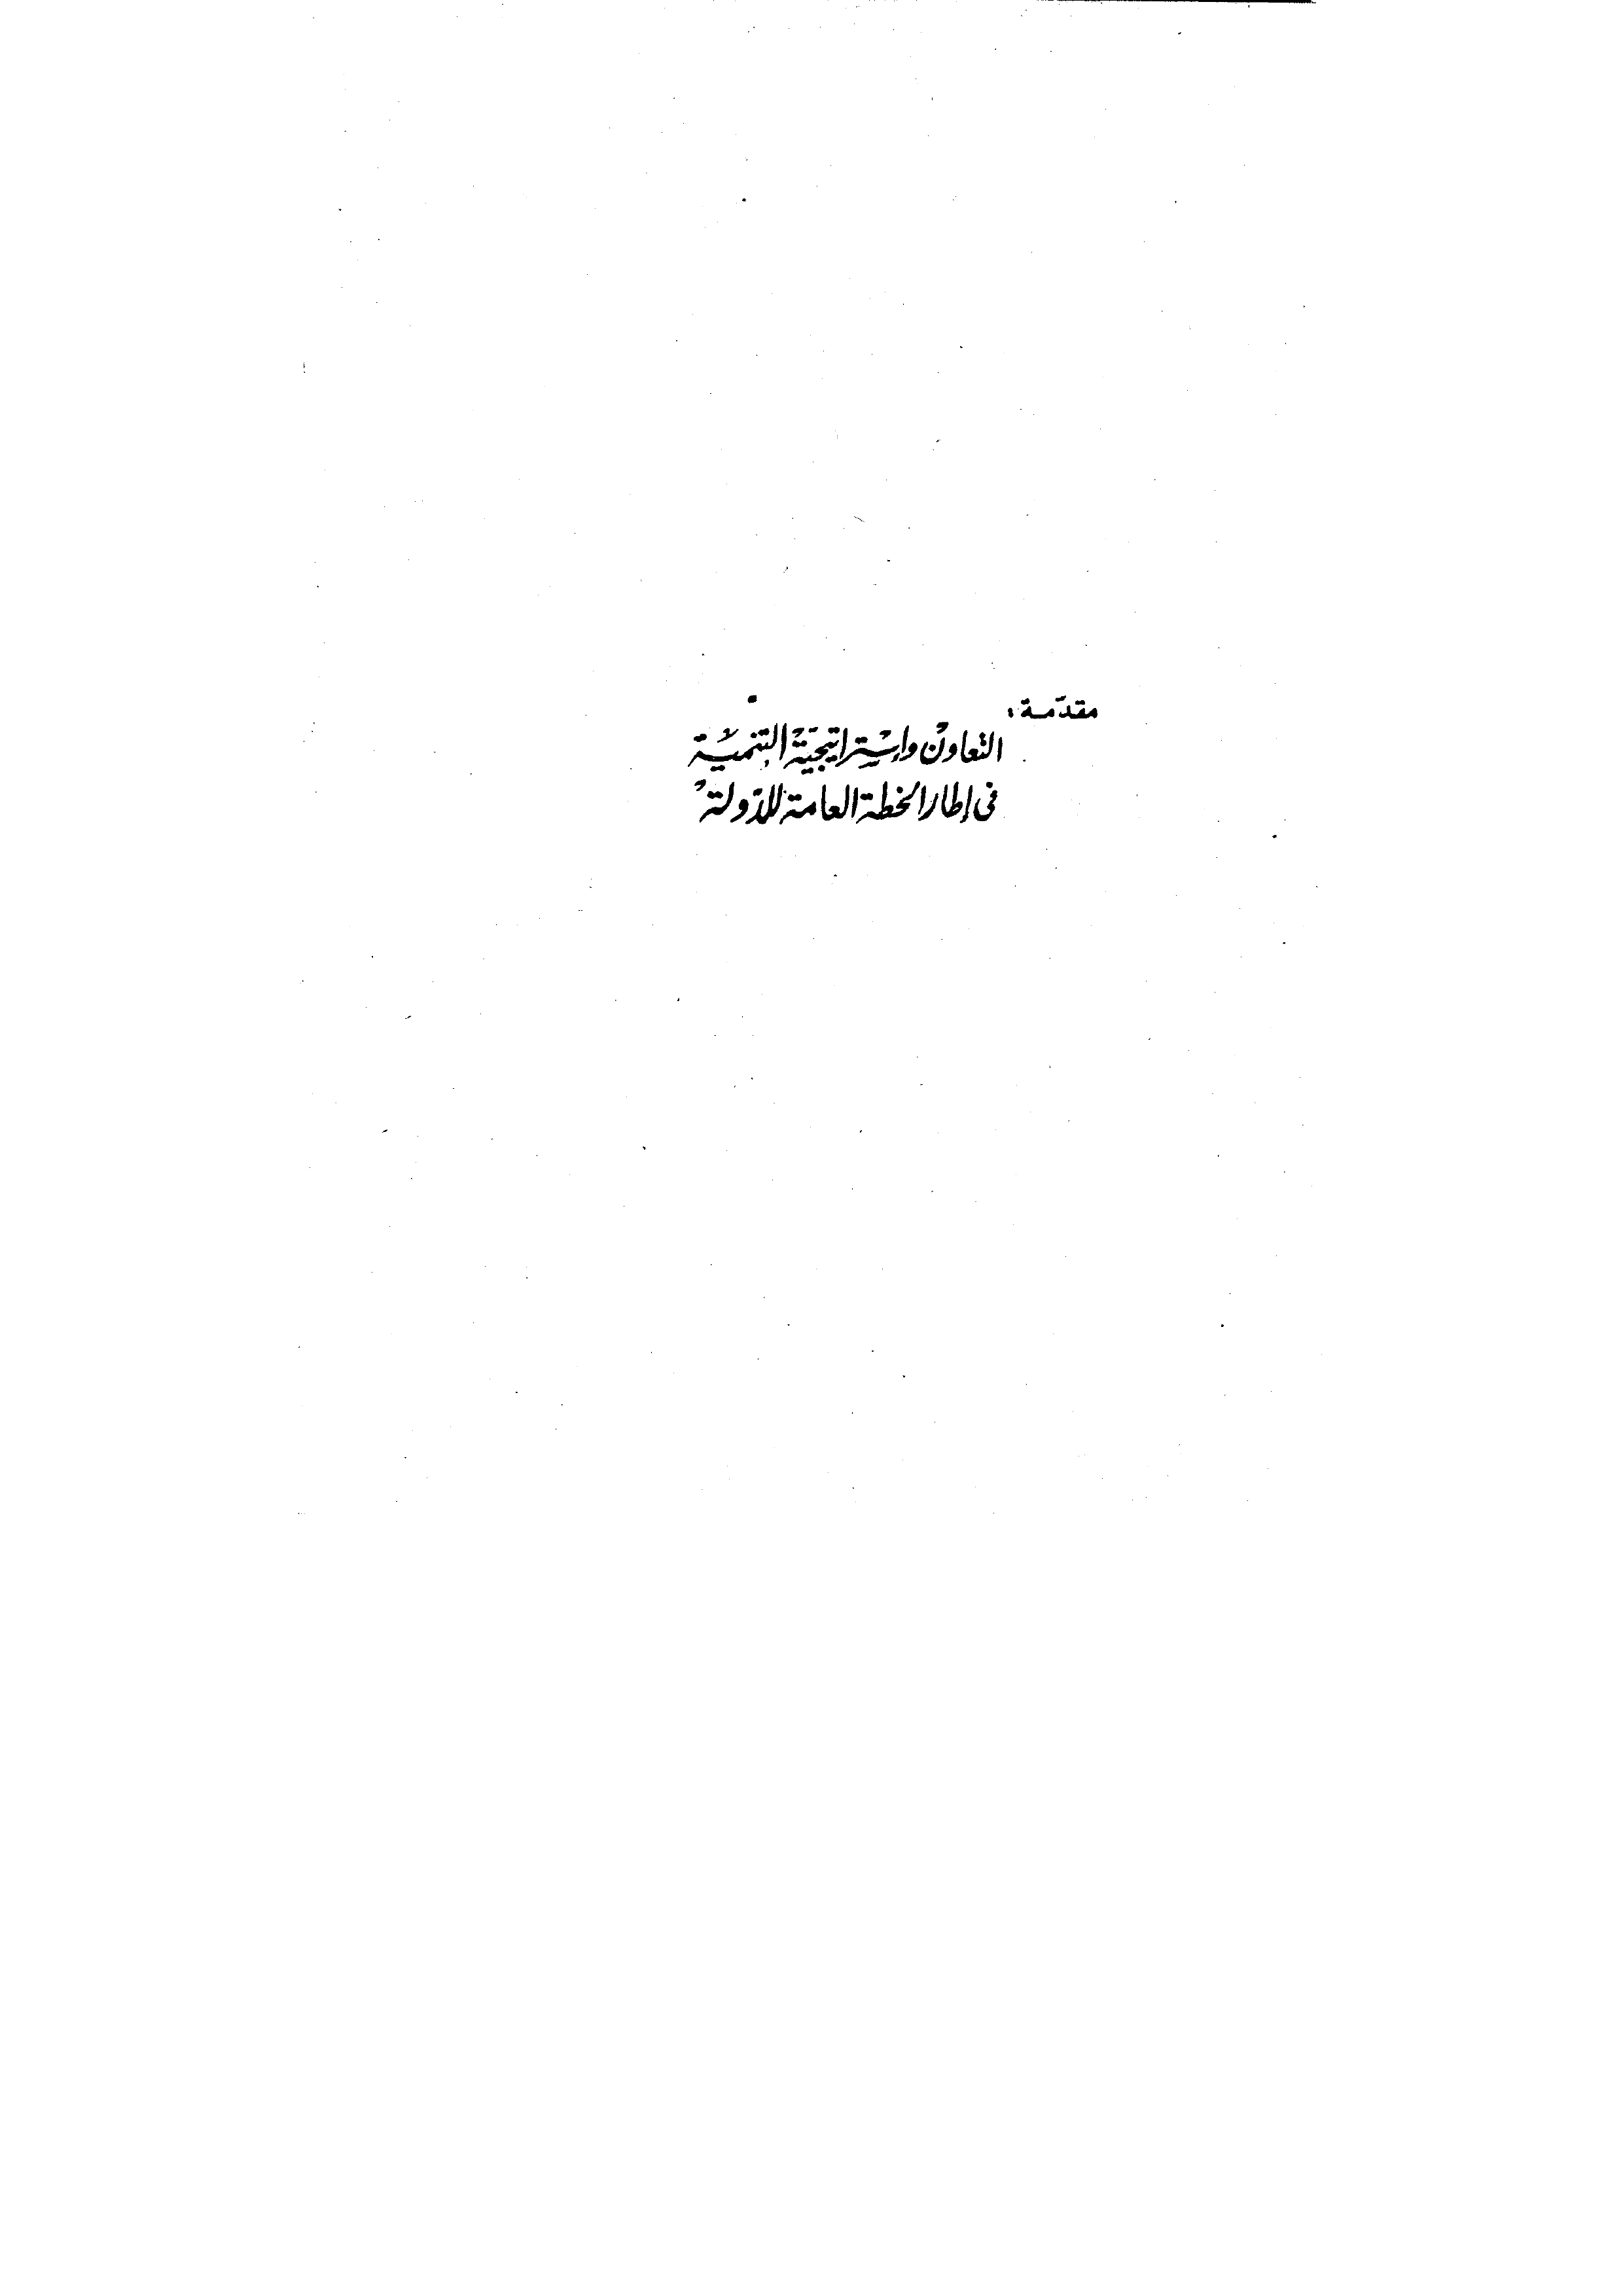 مقدّمة:
التعاون وإستراتيجية التنمية
فى إطار الخطة العامة للدولة